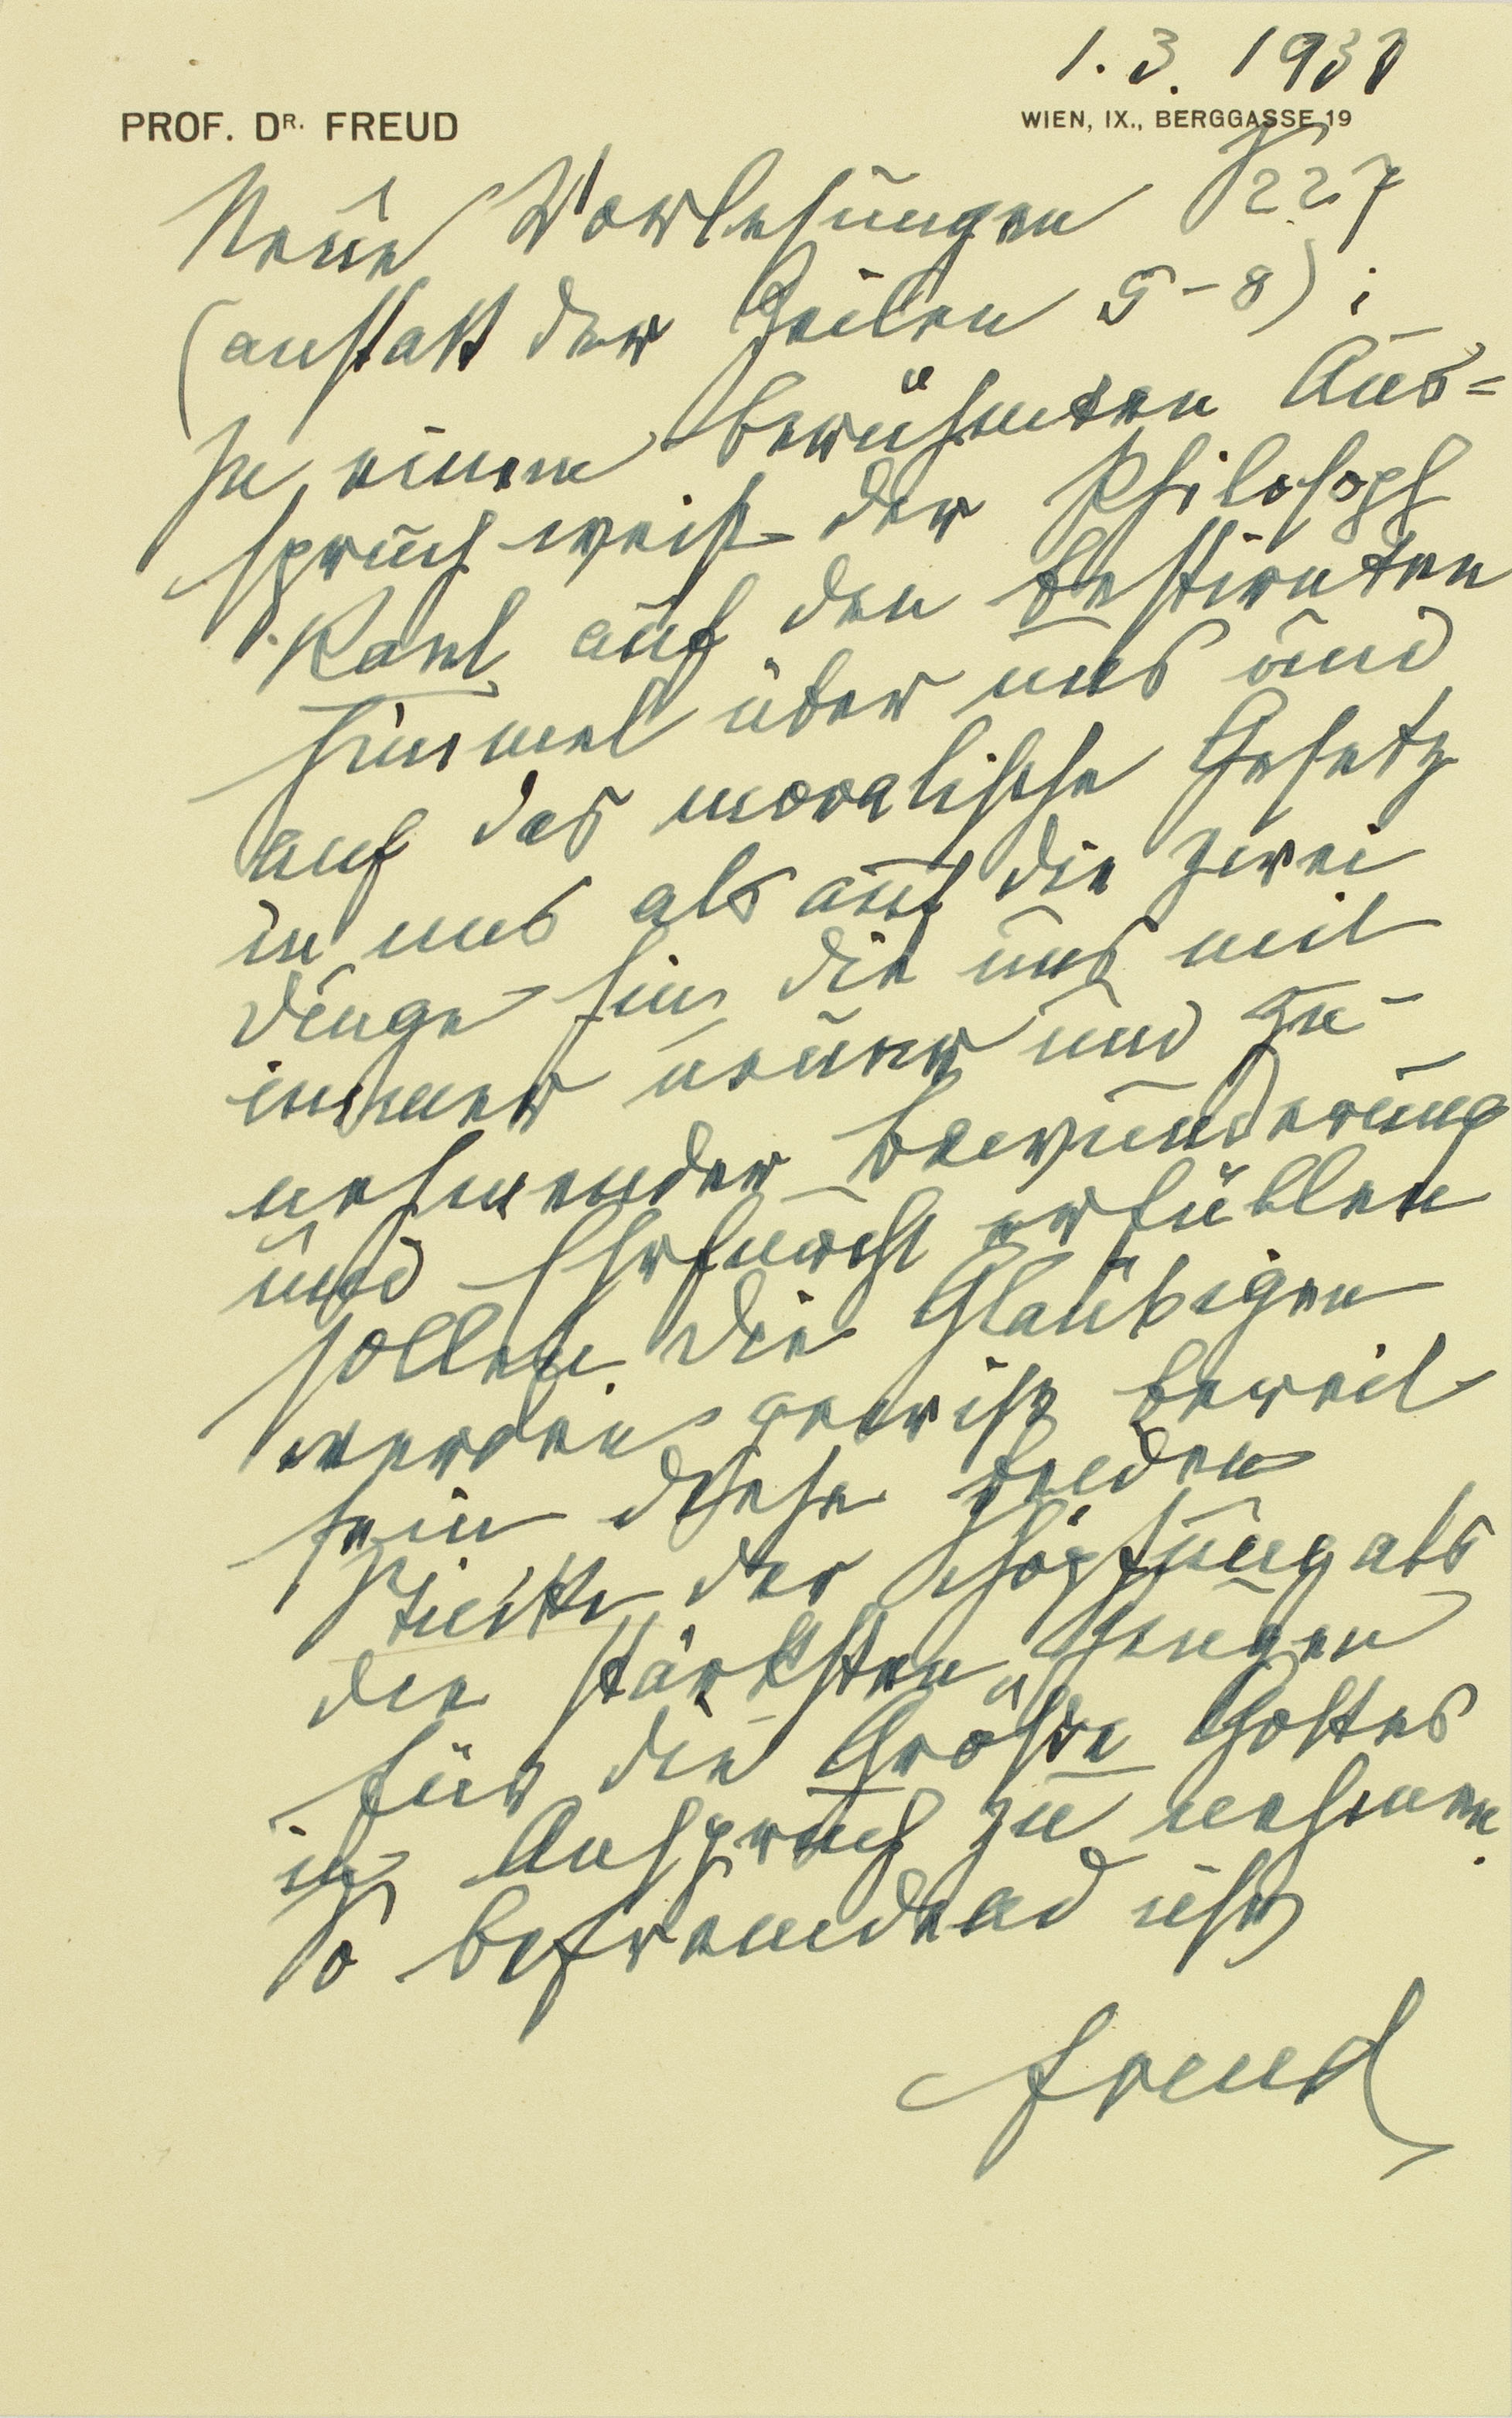 1. 3. 1938
PROF. DR. FREUD
WIEN, IX., BERGGASSE 19
Neue Vorlesungen S 227
(anstatt der Zeilen 5-8):
In einem berühmten Aus=
spruch weist der Philosoph
Kant auf den bestirnten
Himmel über uns und
auf das moralische Gesetz
in uns als auf die zwei
Dinge hin, die uns mit
immer neuer und zu
nehmender Bewunderung
und Ehrfurcht erfüllen
sollen. Die Gläubigen
werden gewiß bereit
sein diese beiden
Stücke der Schöpfung als
die stärksten Zeugen
für die Größe Gottes
in Anspruch zu nehmen.
So befremdend ist
Freud